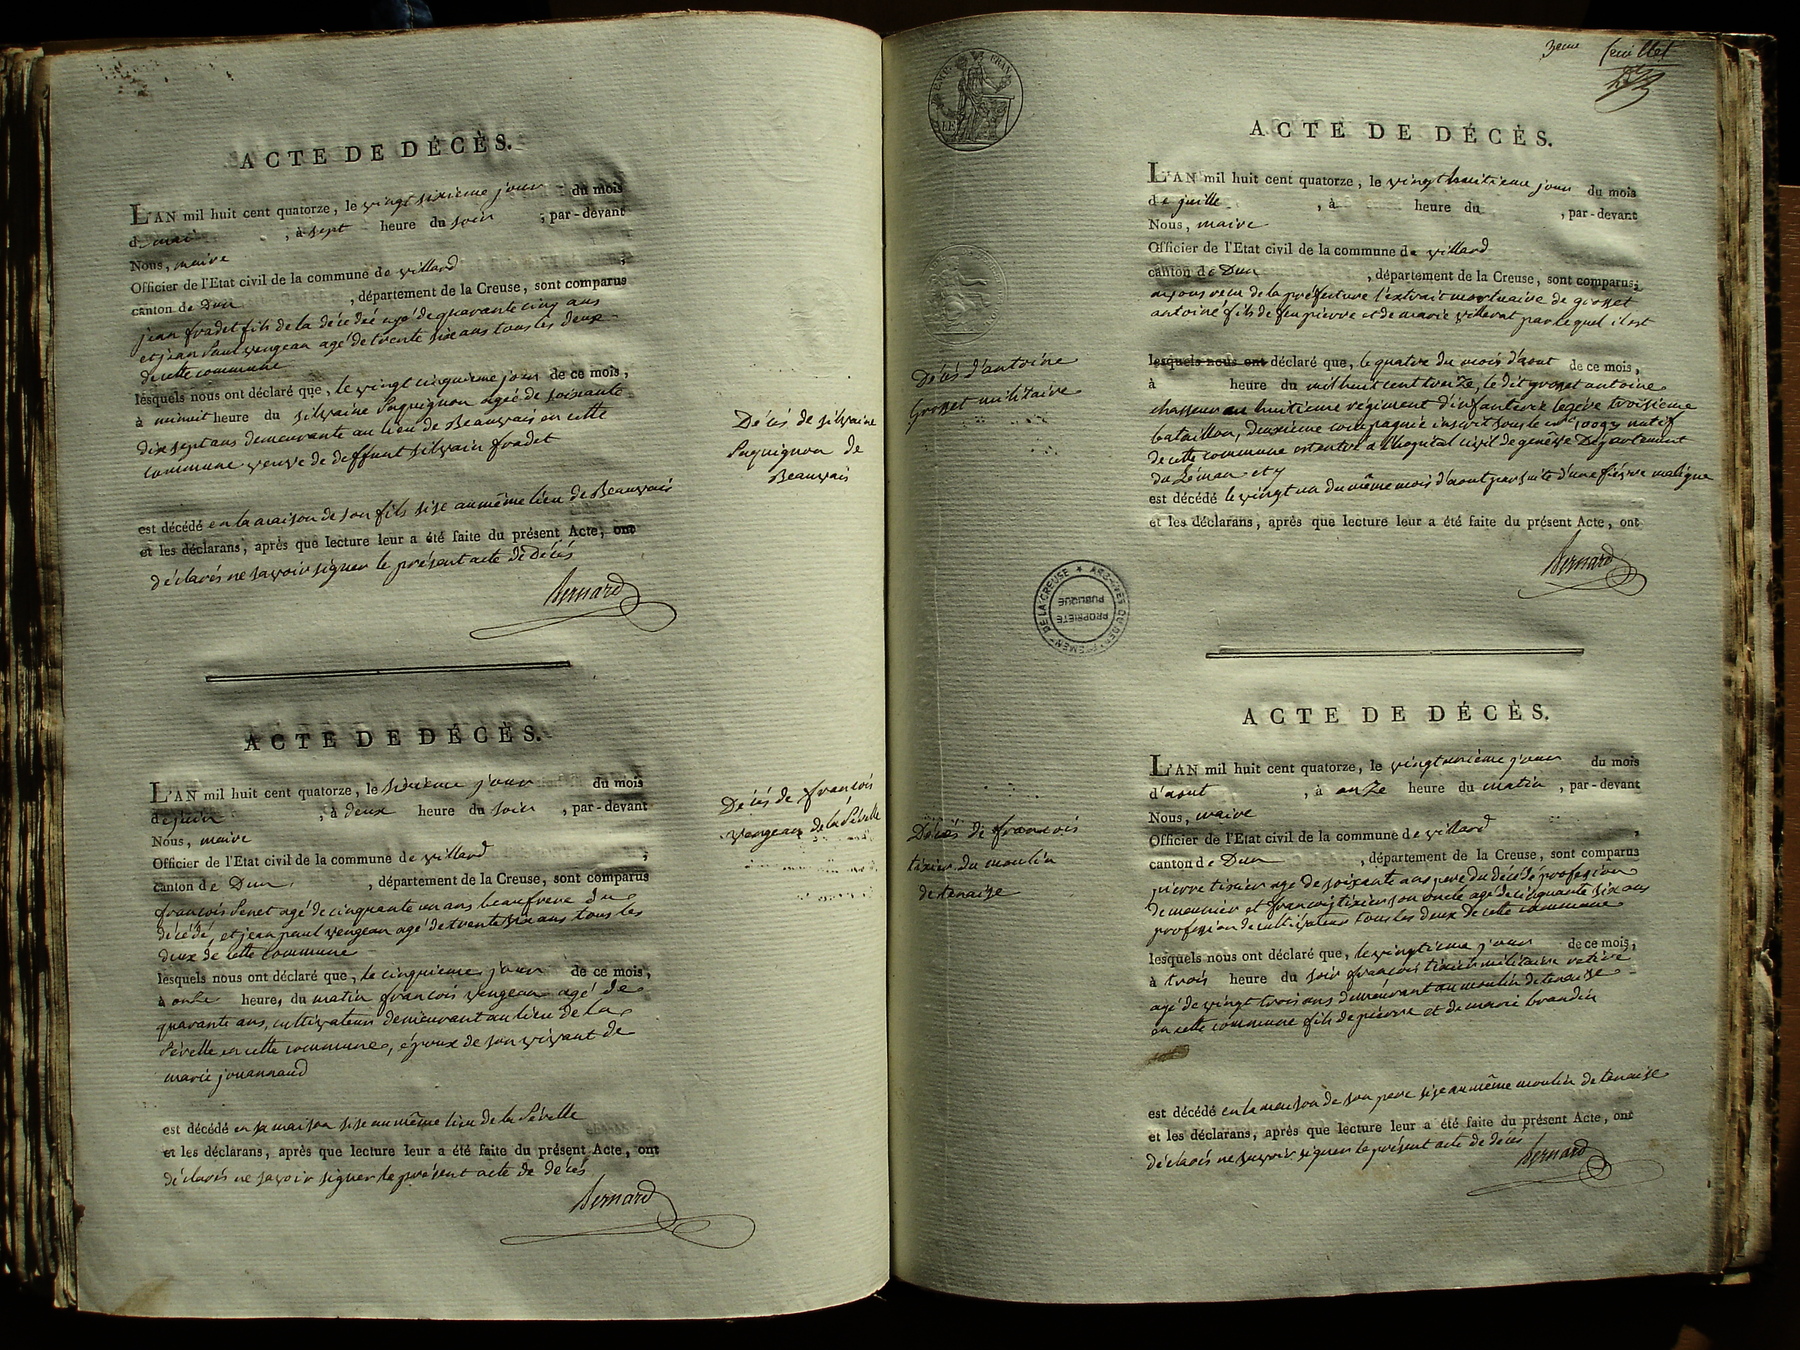 ACTE DE DÉCÈS.
L'AN mil huit cent quatorze, le vingt sixieme jour du mois
de mai, à sept heure du soir ; par-devant
Nous, maire
Officier de l'Etat civil de la commune de villard
canton de Dun, département de la Creuse, sont comparus
jean fradet fils de la décédeé agé de quarante cinq ans
et jean Paul vengean agé de trente six ans tous les deux
de cette commune
lesquels nous ont déclaré que, le vingt cinquieme jour de ce mois,
à minuit heure du silvaine Paquignon ageé de soixante
dix sept ans demeurante au lieu de Beauvais en cette
commune veuve de deffunt silvain fradet
est décédé en la maison de son fils sise au même lieu de Beauvais
et les déclarans, après que lecture leur a été faite du présent Acte, ont
déclarés ne savoir signer le présent acte de décés
Bernard
Décés de silvaine
Paquignon de
Beauvais
ACTE DE DÉCÈS.
L'AN mil huit cent quatorze, le sixieme jour du mois
de juin, à deux heure du soir, par-devant
Nous, maire
Officier de l'Etat civil de la commune de villard ;
canton de Dun, département de la Creuse, sont comparus
françois Penet agé de cinquante un ans beaufrere du
décédé, et jean paul vengean agé de trente six ans tous les
deux de cette commune
lesquels nous ont déclaré que, le cinquieme jour de ce mois,
à onze heures du matin françois vengean agé de
quarante ans, cultivateur demeurant au lieu de la
Pévelle en cette commune, époux de son vivant de
marie jouannaud
est décédé en sa maison sise au même lieu de la Pévelle
et les déclarans, après que lecture leur a été faite du présent Acte, ont
déclarés ne savoir signer le présent acte de décés
Bernard
Décés de françois
vengean de la Pévelle
3eme feuillet
ACTE DE DÉCÈS.
L'AN mil huit cent quatorze, le vingt huitieme jour du mois
de juille, à heure du , par-devant
Nous, maire
Officier de l'Etat civil de la commune de villard
canton de Dun, département de la Creuse, sont comparus;
avons reçu de la préfecture l'extrait mortuaire de grosset
antoine fils de feu pierre et de marie villerat par lequel il est
lesquels nous ont déclaré que, le quatre du mois d'aout de ce mois,
à heure du mil huit cent treize, le dit grosset antoine
chasseur au huitieme régiment d'infanterie legére troisieme
bataillon, deuxieme compagnie inscrit sous le nº natif
de cette commune est entré a l'hopital civil de genéve Département
du Léman et y
est décédé le vingt un du même mois d'aout par suite d'une fiévre maligne
et les déclarans, après que lecture leur a été faite du présent Acte, ont
Bernard
Décés d'antoine
Grosset militaire
ARCHIVES DU DEPARTEMENT DE LA CREUSE
PROPRIETE
PUBLIQUE
ACTE DE DÉCÈS.
L'AN mil huit cent quatorze, le vingt unieme jour du mois
d'aout, à onze heure du matin, par-devant
Nous, maire
Officier de l'Etat civil de la commune de villard
canton de Dun, département de la Creuse, sont comparus
pierre tixier agé de soixante ans pere du décédé profession
de meunier et françois tixier son oncle agé de cinquante six ans
profession de cultivateur tous les deux de cette commune
lesquels nous ont déclaré que, le vingtieme jour de ce mois,
à trois heure du soir françois tixier militaire retiré
agé de vingt trois ans demeurant au moulin de tenaise
en cette commune fils de pierre et de marie brandin
est décédé en la maison de son pere sise au même moulin de tenaise
et les déclarans, après que lecture leur a été faite du présent Acte, ont
déclarés ne savoir signer le présent acte de décés
Bernard
Décés de francois
tixier du moulin
de tenaise